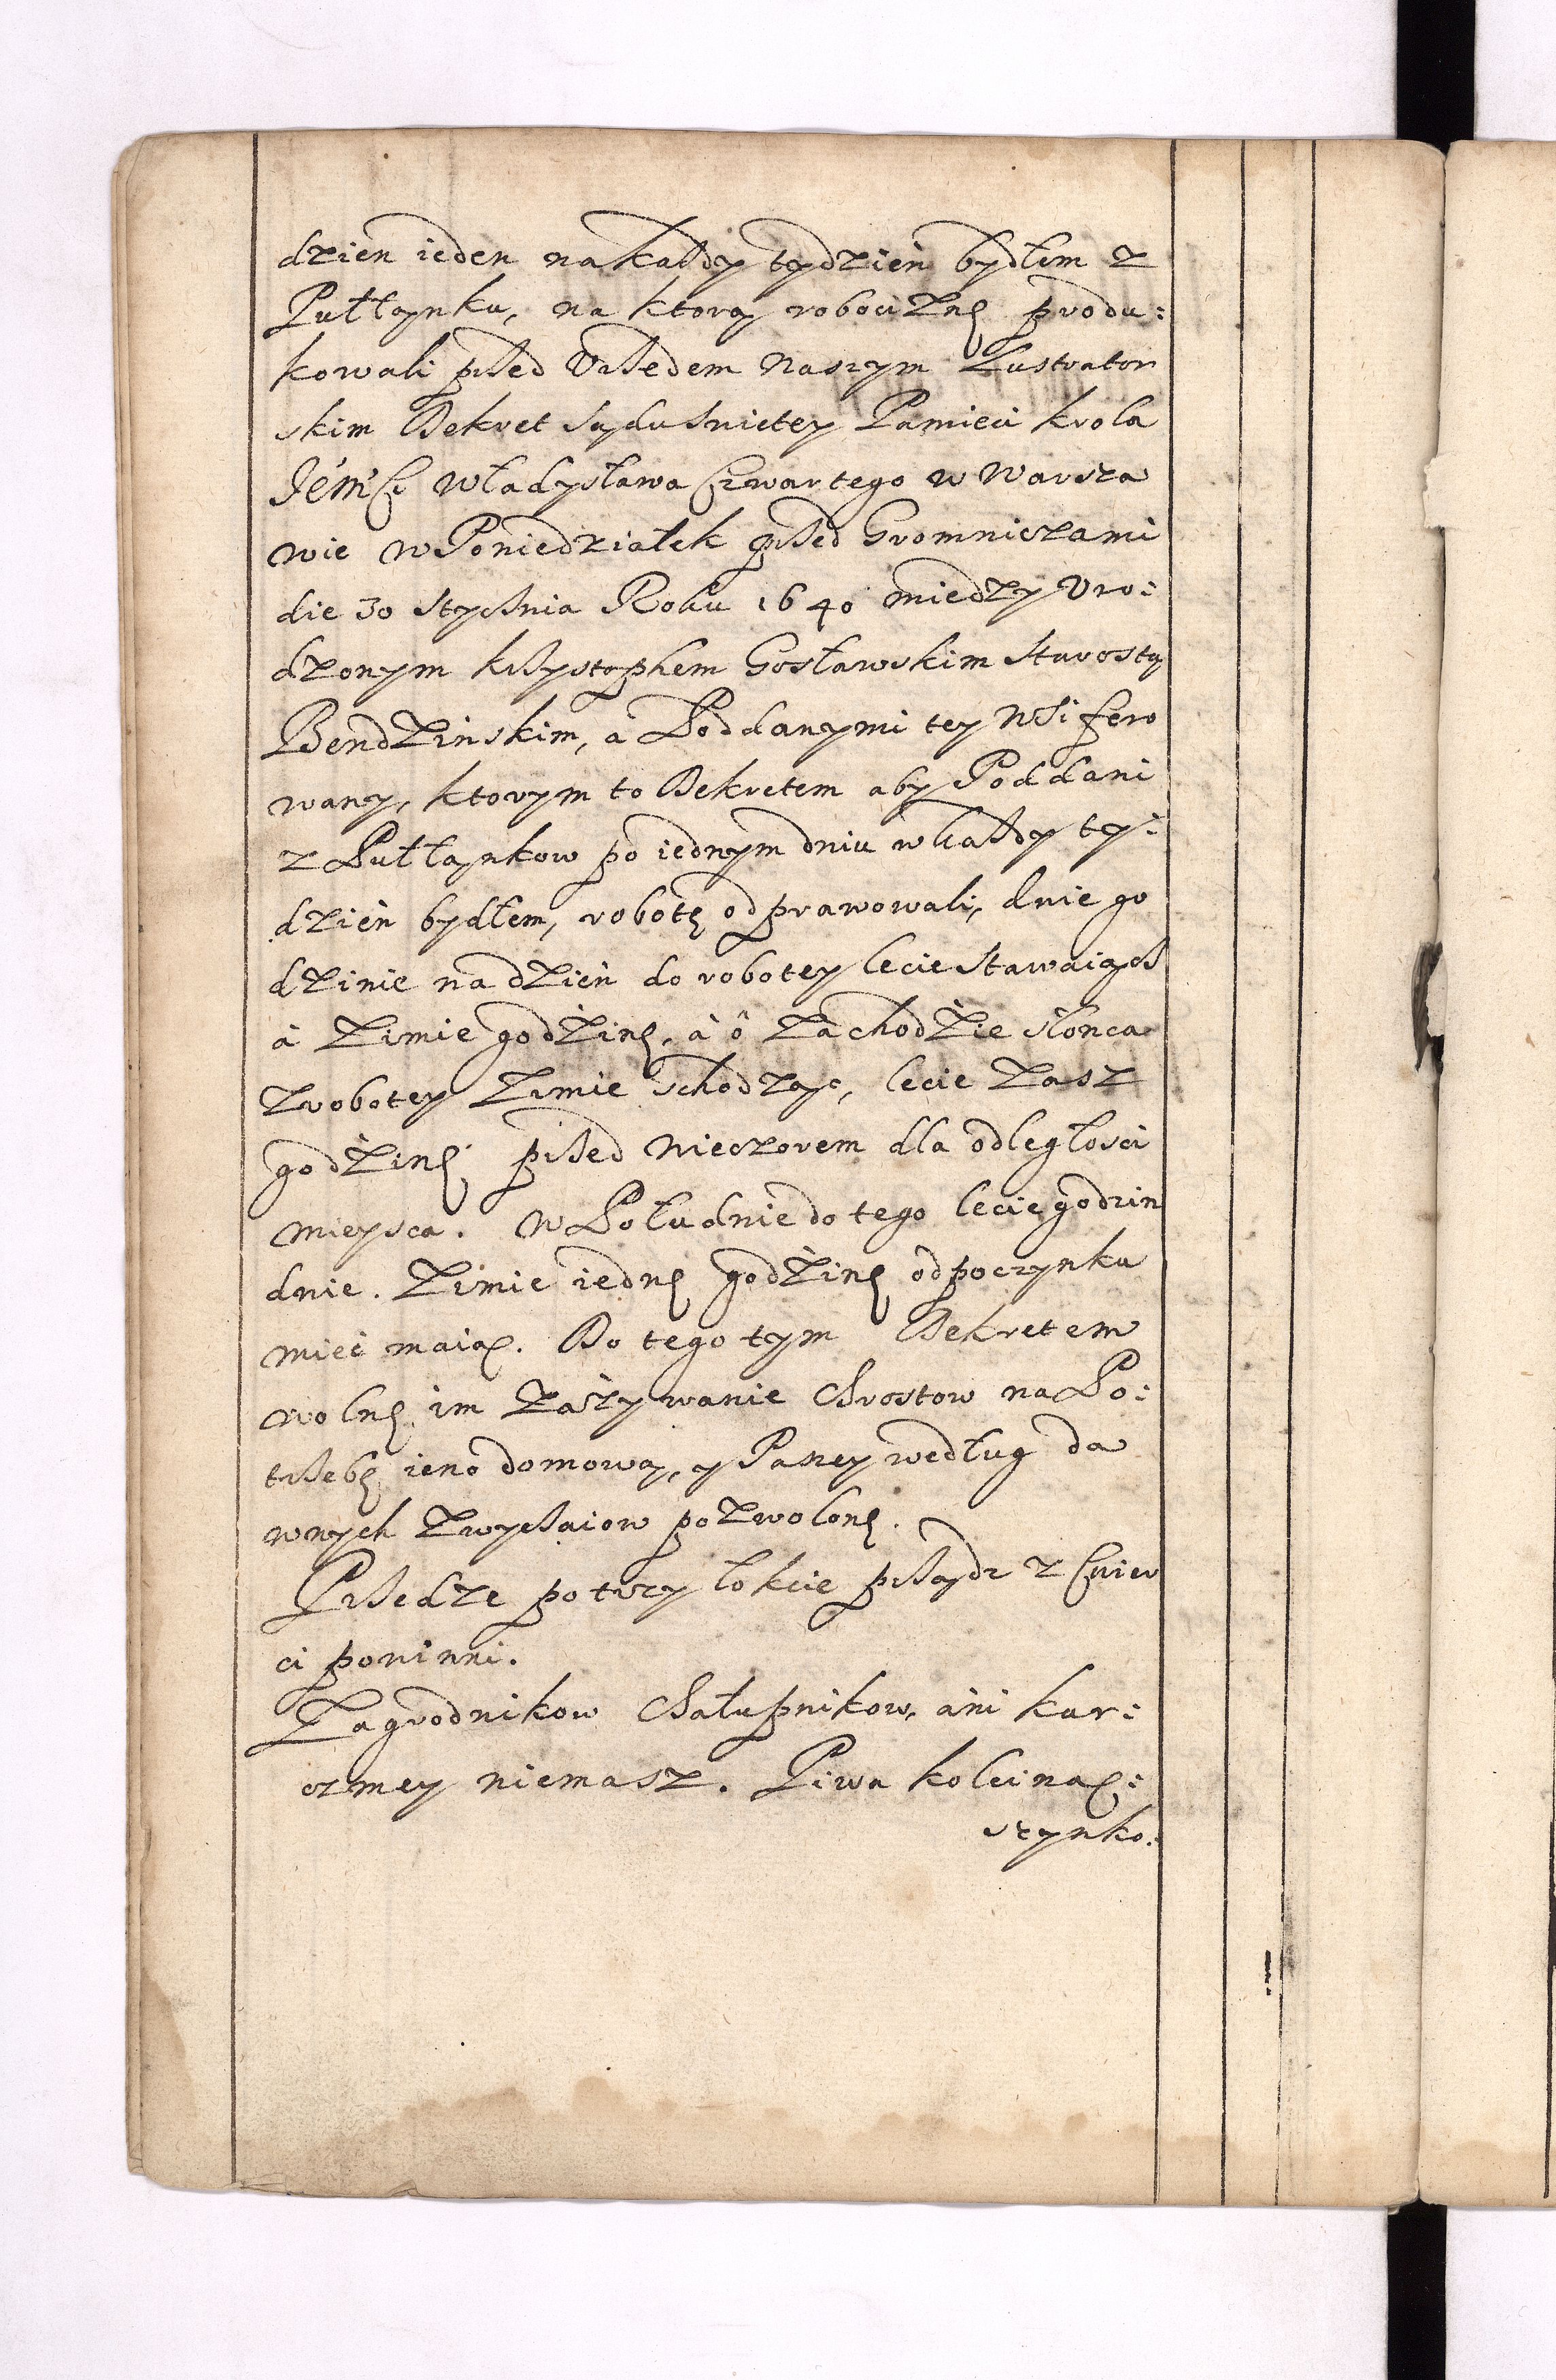 dzien ieden na kazdy tydzień bydłem z
Pułłaynku, na ktorą robociznę produ:
kowali przed Urzędem naszym Lustrator
skim Dekret Sądu Swietey Pamieci krola
Je'm'ci Władysława Czwartego w Warsza
wie w Poniedziałek przed Gromniczami
die 30 Stycznia Roku 1640 miedzy Uro:
dzonym krzystophem Gosławskim Starostą
Bendzinskim, a Poddanymi tey Wsi fero
wany, ktorym to Dekretem aby Poddani
z Pułłaynkow po iednym dniu w każdy ty:
dzień bydłem, robotę odprawowali, dwie go
dzinie na dzień do robotey lecie stawaiącz
à zimie godzinę, à ô zachodzie słonca
z robotey zimie schodząc, lecie zasz
godzinę przed wieczorem dla odległosci
mieysca. w Południe do tego lecie godzin
dwie. zimie iednę godzinę odpoczynku
mieć maią. Do tego tym Dekretem
wolnę im zażywanie Chrostow na Po:
trzebę ieno domową, y Paszey według da
wnych zwyczaiow pozwolonę.
Przedze po trzy łokcie prządz z Cwier
ci powinni.
Zagrodnikow Chałupnikow, ani kar:
czmey niemasz. Piwa kolei na
szynko: